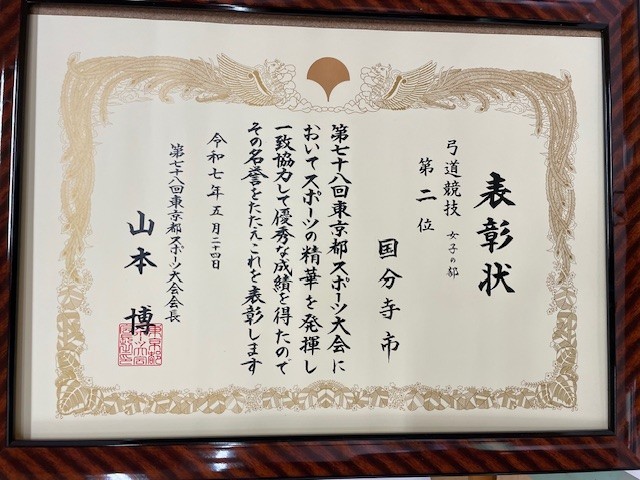 表彰状
弓道競技 女子の部
第二位
国分寺市
第七十八回東京都スポーツ大会に
おいてスポーツの精華を発揮し
一致協力して優秀な成績を得たので
その名誉をたたえこれを表彰します
令和七年五月二十四日
第七十八回東京都スポーツ大会会長
山本博